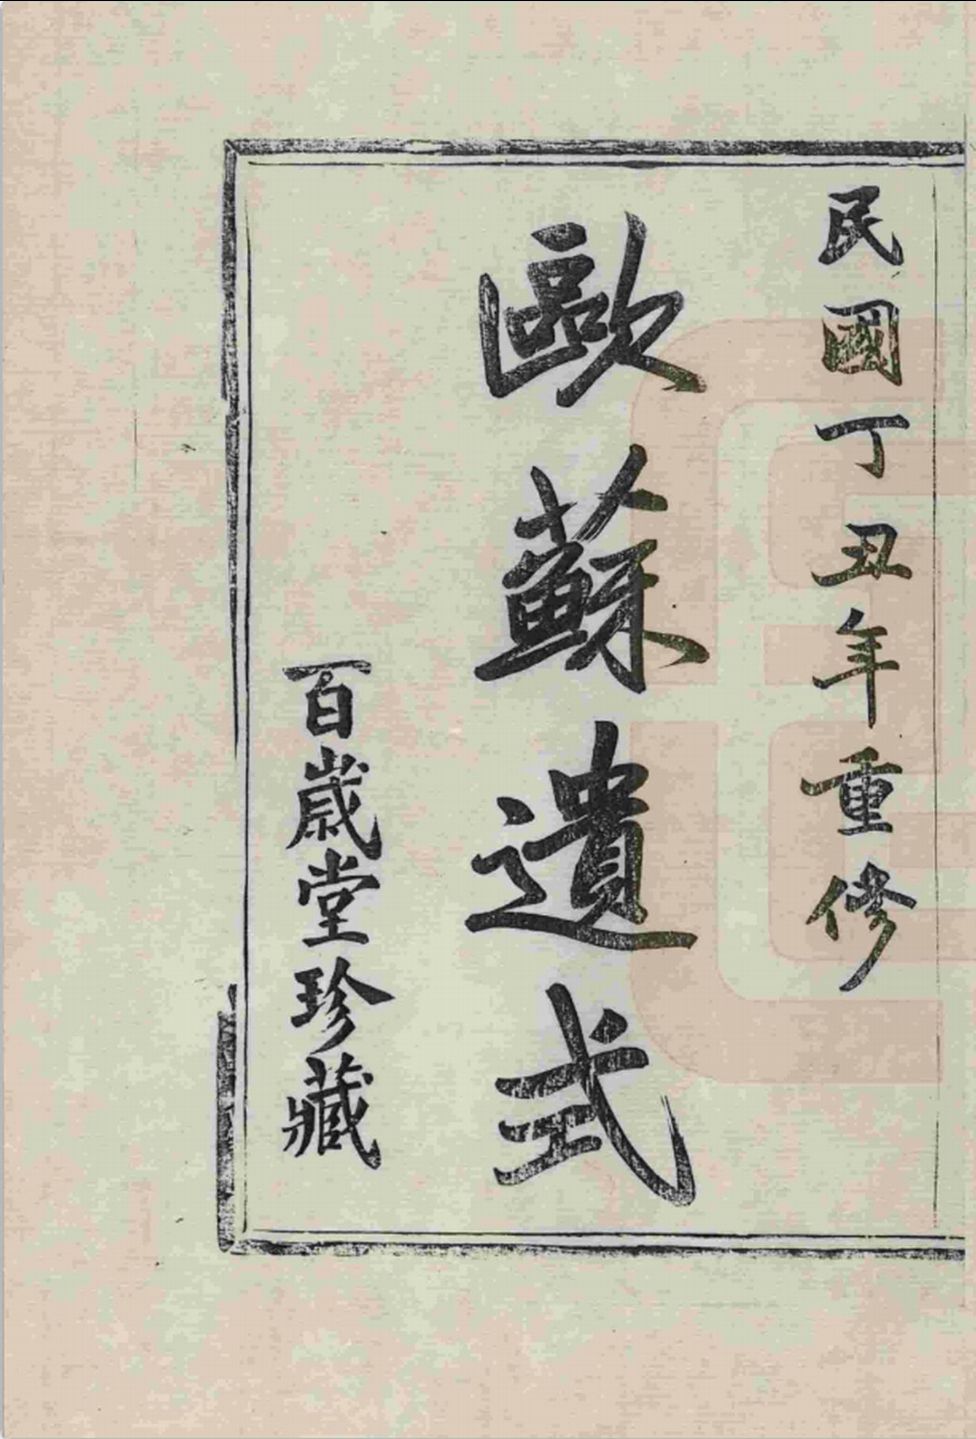 民國丁丑年重修
歐蘇遺式
百歲堂珍藏